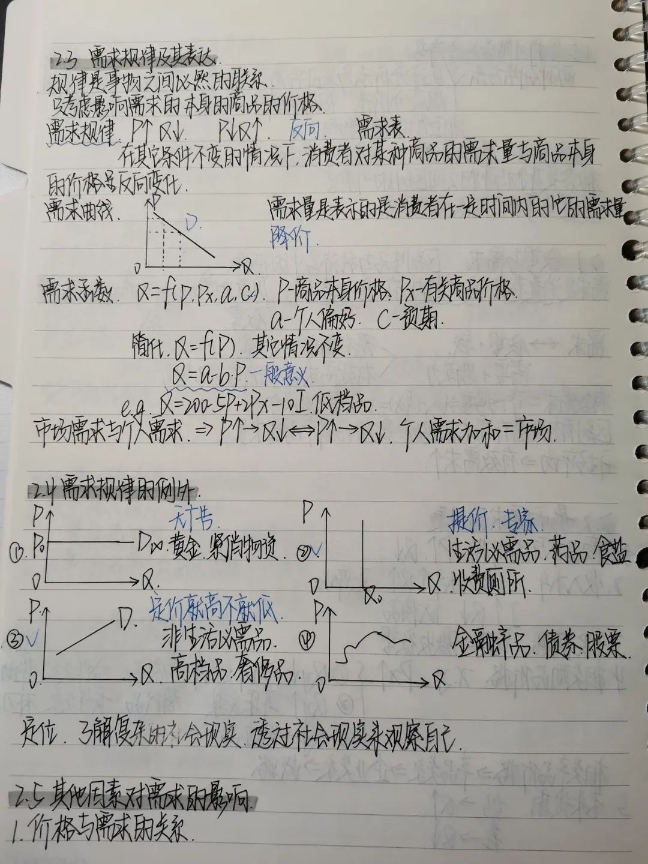 2.3 需求规律及其表达.
规律是事物之间必然的联系.
只考虑影响需求的本身的商品的价格.
需求规律. P↑ Q↓. P↓Q↑. 反向. 需求表.
在其它条件不变的情况下, 消费者对某种商品的需求量与商品本身
的价格呈反向变化.
需求曲线. P D. O Q. 需求量是表示的是消费者在一定时间内的他的需求量
降价.
需求函数. Q=f(P.Px.a.C). P-商品本身价格. Px-有关商品价格.
a-个人偏好. C-预期.
简化. Q=f(P). 其它情况不变.
Q=a-b·P. 一般意义
e.g. Q=200-5P+2Px-10I. 低档品.
市场需求与个人需求. ⇒ P↑→Q↓⇔P↑→Q↓. 个人需求加和=市场.
2.4 需求规律的例外.
① P. P0 D∞. O Q. 无广告 黄金. 紧俏物资.
② P. O Q0 Q. 提价. 专家. 生活必需品. 药品. 食盐
收费厕所.
③ P. D. O Q. 定价就高不就低.
非生活必需品.
高档品. 奢侈品.
④ P. O Q. 金融产品. 债券. 股票.
定位. 了解复杂的社会现实. 透过社会现实来观察自己.
2.5 其他因素对需求的影响.
1. 价格与需求的关系.